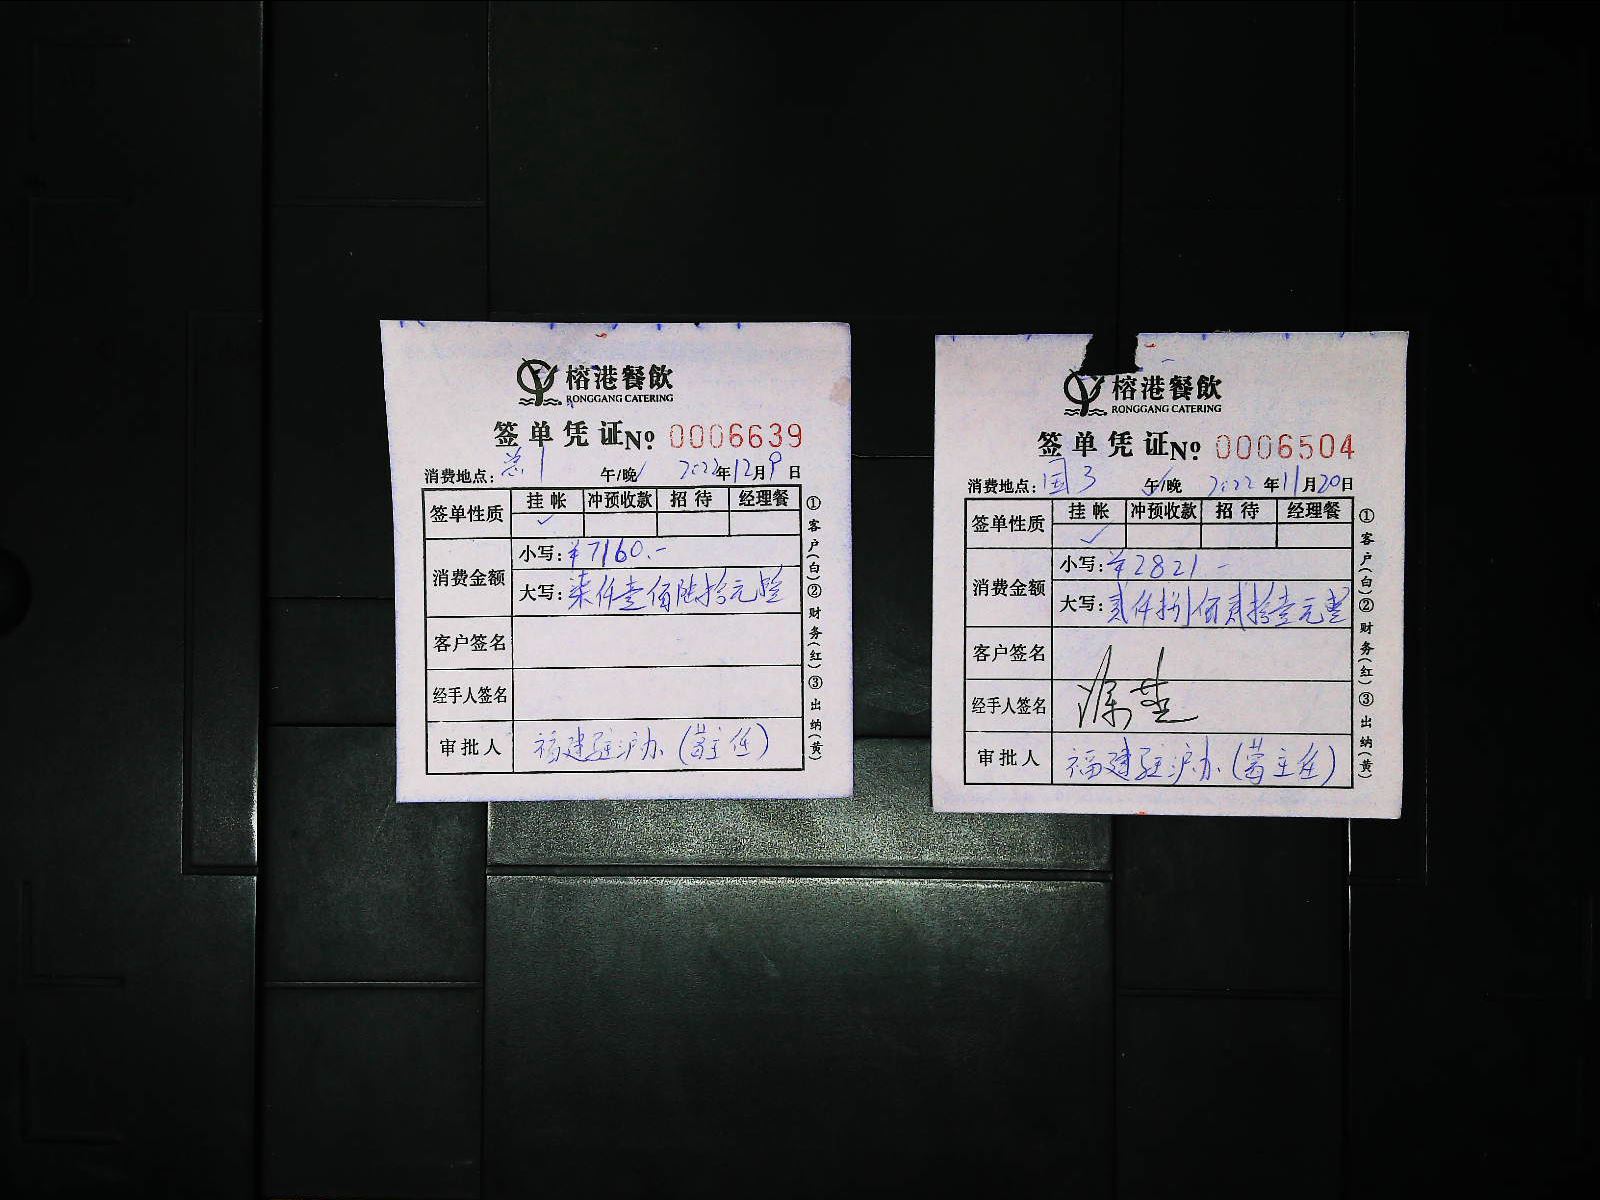 榕港餐飲
RONGGANG CATERING
签单凭证№ 0006639
消费地点: 总1 午/晚 2022年12月9日
签单性质 挂帐 冲预收款 招待 经理餐
✓
消费金额
小写: ¥7160.-
大写: 柒仟壹佰陆拾元整
客户签名
经手人签名
审批人 福建驻沪办(主任)
①客户(白)②财务(红)③出纳(黄)
榕港餐飲
RONGGANG CATERING
签单凭证№ 0006504
消费地点: 国3 午/晚 2022年11月20日
签单性质 挂帐 冲预收款 招待 经理餐
✓
消费金额
小写: ¥2821-
大写: 贰仟捌佰贰拾壹元整
客户签名
经手人签名
审批人 福建驻沪办(主任)
①客户(白)②财务(红)③出纳(黄)